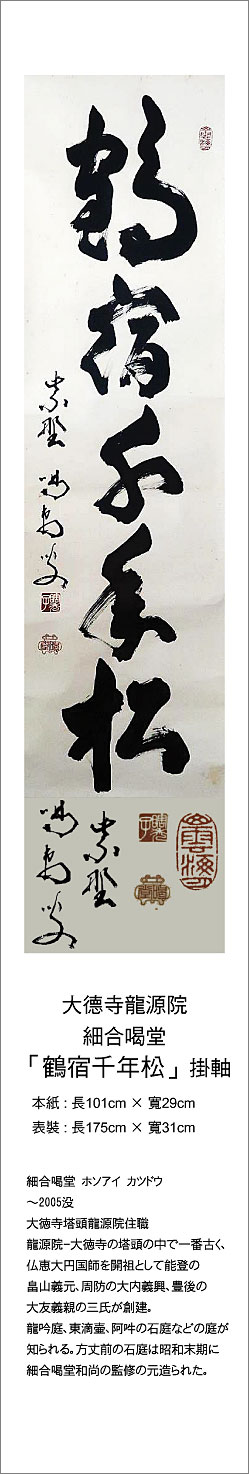 鶴宿千年松
紫野
喝堂叟
大德寺龍源院
細合喝堂
「鶴宿千年松」掛軸
本紙：長101cm × 寬29cm
表裝：長175cm × 寬31cm
細合喝堂 ホソアイ カツドウ
～2005没
大徳寺塔頭龍源院住職
龍源院-大徳寺の塔頭の中で一番古く、
仏恵大円国師を開祖として能登の
畠山義元、周防の大内義興、豊後の
大友義親の三氏が創建。
龍吟庭、東滴壷、阿吽の石庭などの庭が
知られる。方丈前の石庭は昭和末期に
細合喝堂和尚の監修の元造られた。